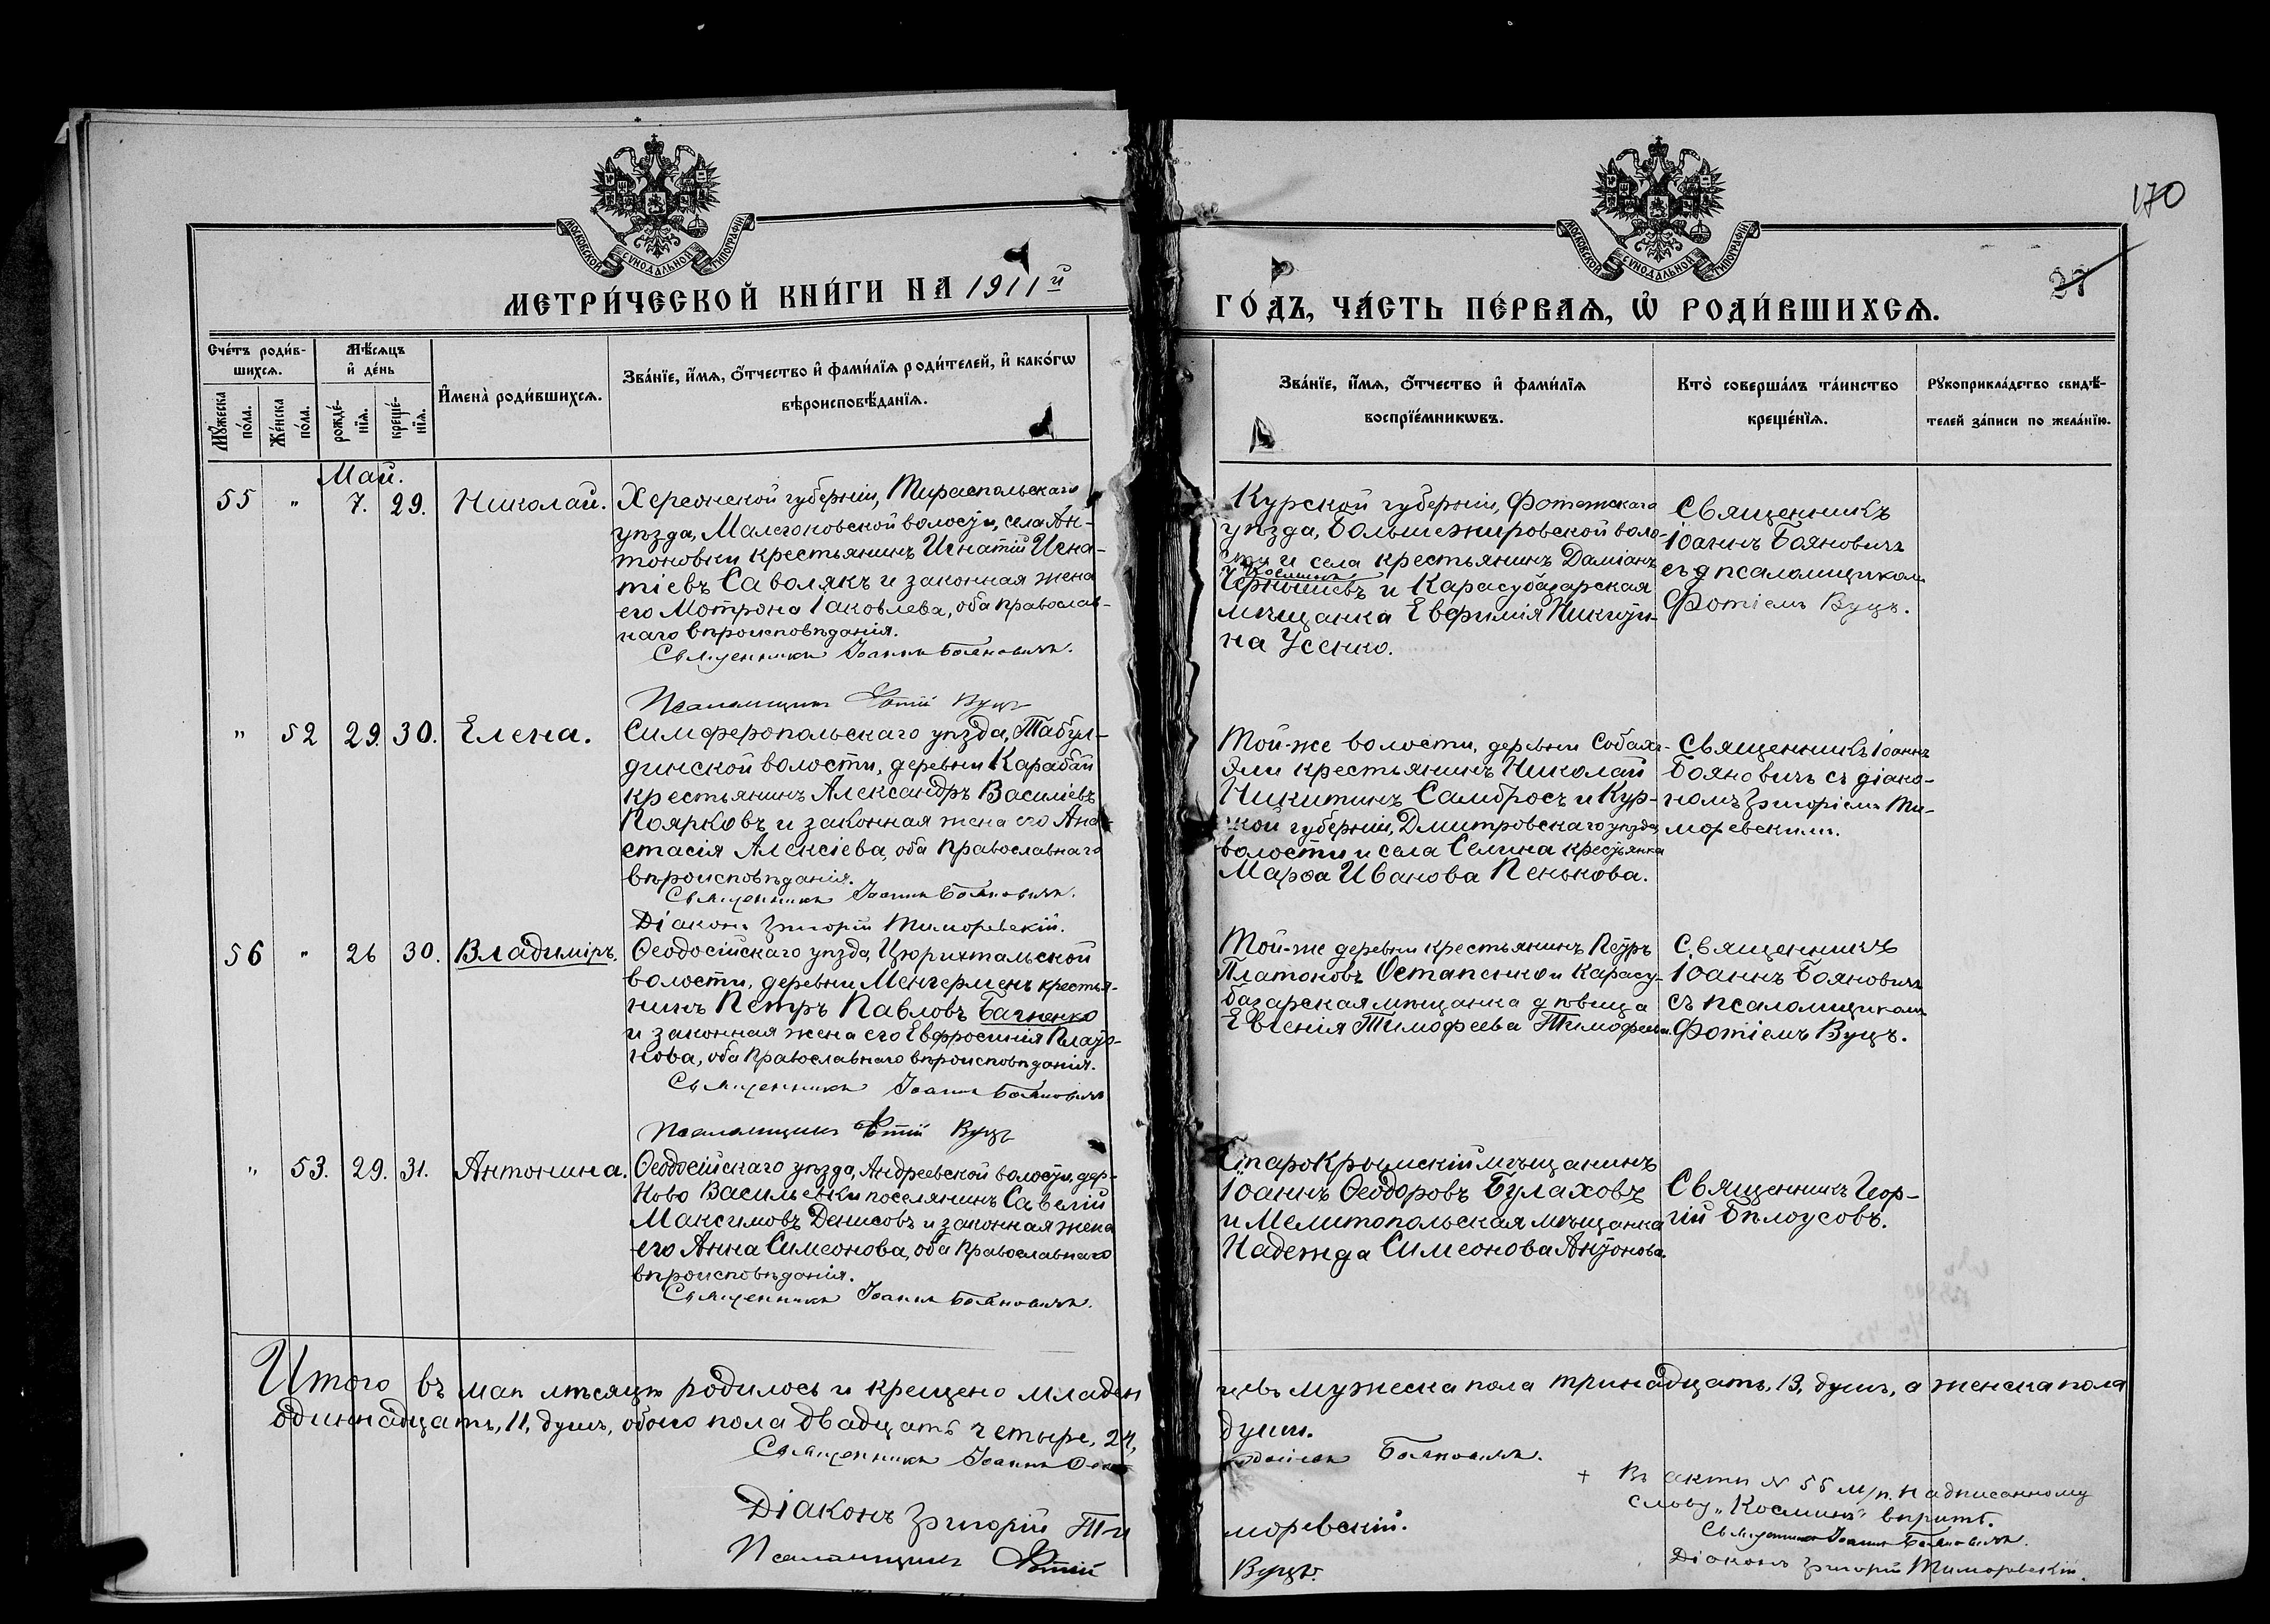 170
27
МОСКОВСКОЙ СУНОДАЛЬНОЙ ТИПОГРАФІИ
МОСКОВСКОЙ СУНОДАЛЬНОЙ ТИПОГРАФІИ
МЕТРИ́ЧЕСКОЙ КНИ́ГИ НА 1911й
ГО́ДЪ, ЧА́СТЬ ПЕ́РВАѦ, Ѡ҆ РОДИ́ВШИХСѦ.
Сче́тъ роди́в-
шихсѧ.
Мѣ́сѧцъ
и҆ де́нь
Мꙋ́жеска
по́ла.
Же́нска
по́ла.
рожде́-
нїѧ.
креще́-
нїѧ.
И҆мена̀ роди́вшихсѧ.
Зва́нїе, и҆́мѧ, ѻ҆́тчество и҆ фами́лїѧ роди́телей, и҆ како́гѡ
вѣроисповѣ́данїѧ.
Зва́нїе, и҆́мѧ, ѻ҆́тчество и҆ фами́лїѧ
воспрїе́мникѡвъ.
Кто̀ соверша́лъ та́инство
креще́нїѧ.
Рꙋкоприкла́дство свидѣ́-
телей за́писи по жела́нїю.
Май.
55 " 7. 29. Николай.
Херсонской губерніи, Тираспольскаго
уѣзда, Малегоновской волости, села Ан-
тоновки крестьянинъ Игнатій Игна-
тіевъ Саволякъ и законная жена
его Мотрона Іаковлева, оба православ-
наго вѣроисповѣданія.
Священникъ Іоаннъ Бояновичъ.
Псаломщикъ Фотій Вуцъ
Курской губерніи, Фатежскаго
уѣзда, Большежировской воло-
сти и села крестьянинъ Даміанъ
+ Космінъ
Чернышевъ и Карасубазарская
мѣщанка Евфимія Никити-
на Усенко.
Священникъ
Іоаннъ Бояновичъ
съ псаломщикомъ
Фотіемъ Вуцъ.
" 52 29. 30. Елена.
Симферопольскаго уѣзда, Табул-
динской волости, деревни Карабай
крестьянинъ Александръ Василіевъ
Поярковъ и законная жена его Ана-
стасія Алексіева, оба православнаго
вѣроисповѣданія.
Священникъ Іоаннъ Бояновичъ.
Діаконъ Григорій Тиморевскій.
Той-же волости, деревни
эли крестьянинъ Николай
Никитинъ Самбросъ и Кур-
ской губерніи, Дмитровскаго уѣзда,
волости и села Селина крестьянка
Марѳа Иванова Пенькова.
Священникъ Іоаннъ
Бояновичъ съ діако-
номъ Григоріемъ Ти-
моревскимъ.
56 " 26 30. Владиміръ.
Ѳеодосійскаго уѣзда, Цюрихтальской
волости, деревни Менгерменъ крестья-
нинъ Петръ Павловъ Багненко
и законная жена его Евфросинія Плато-
нова, оба православнаго вѣроисповѣданія.
Священникъ Іоаннъ Бояновичъ
Псаломщикъ Фотій Вуцъ
Той-же деревни крестьянинъ Петръ
Платоновъ Остапенко и Карасу-
базарская мѣщанка дѣвица
Евгенія Тимофеева Тимофеева.
Священникъ
Іоаннъ Бояновичъ
съ псаломщикомъ
Фотіемъ Вуцъ.
" 53. 29. 31. Антонина.
Ѳеодосійскаго уѣзда, Андреевской волости, дер.
Ново Васильевки поселянинъ Савелій
Максимовъ Денисовъ и законная жена
его Анна Симеонова, оба православнаго
вѣроисповѣданія.
Священникъ Іоаннъ Бояновичъ.
Старокрымскій мѣщанинъ
Іоаннъ Ѳеодоровъ Булаховъ
и Мелитопольская мѣщанка
Надежда Симеонова Антонова.
Священникъ Геор-
гій Бѣлоусовъ.
Итого въ маѣ мѣсяцѣ родилось и крещено младен цевъ мужеска пола тринадцать, 13, душъ, а женска пола
одиннадцать, 11, душъ, обоего пола двадцать четыре, 24, душъ.
Священникъ Іоаннъ Бояновичъ.
Діаконъ Григорій Ти моревскій.
Псаломщикъ Фотій Вуцъ.
+ Въ актѣ № 55 м/п. надписанному
слову „Косминъ" вѣрить.
Священникъ Іоаннъ Бояновичъ.
Діаконъ Григорій Тиморевскій.